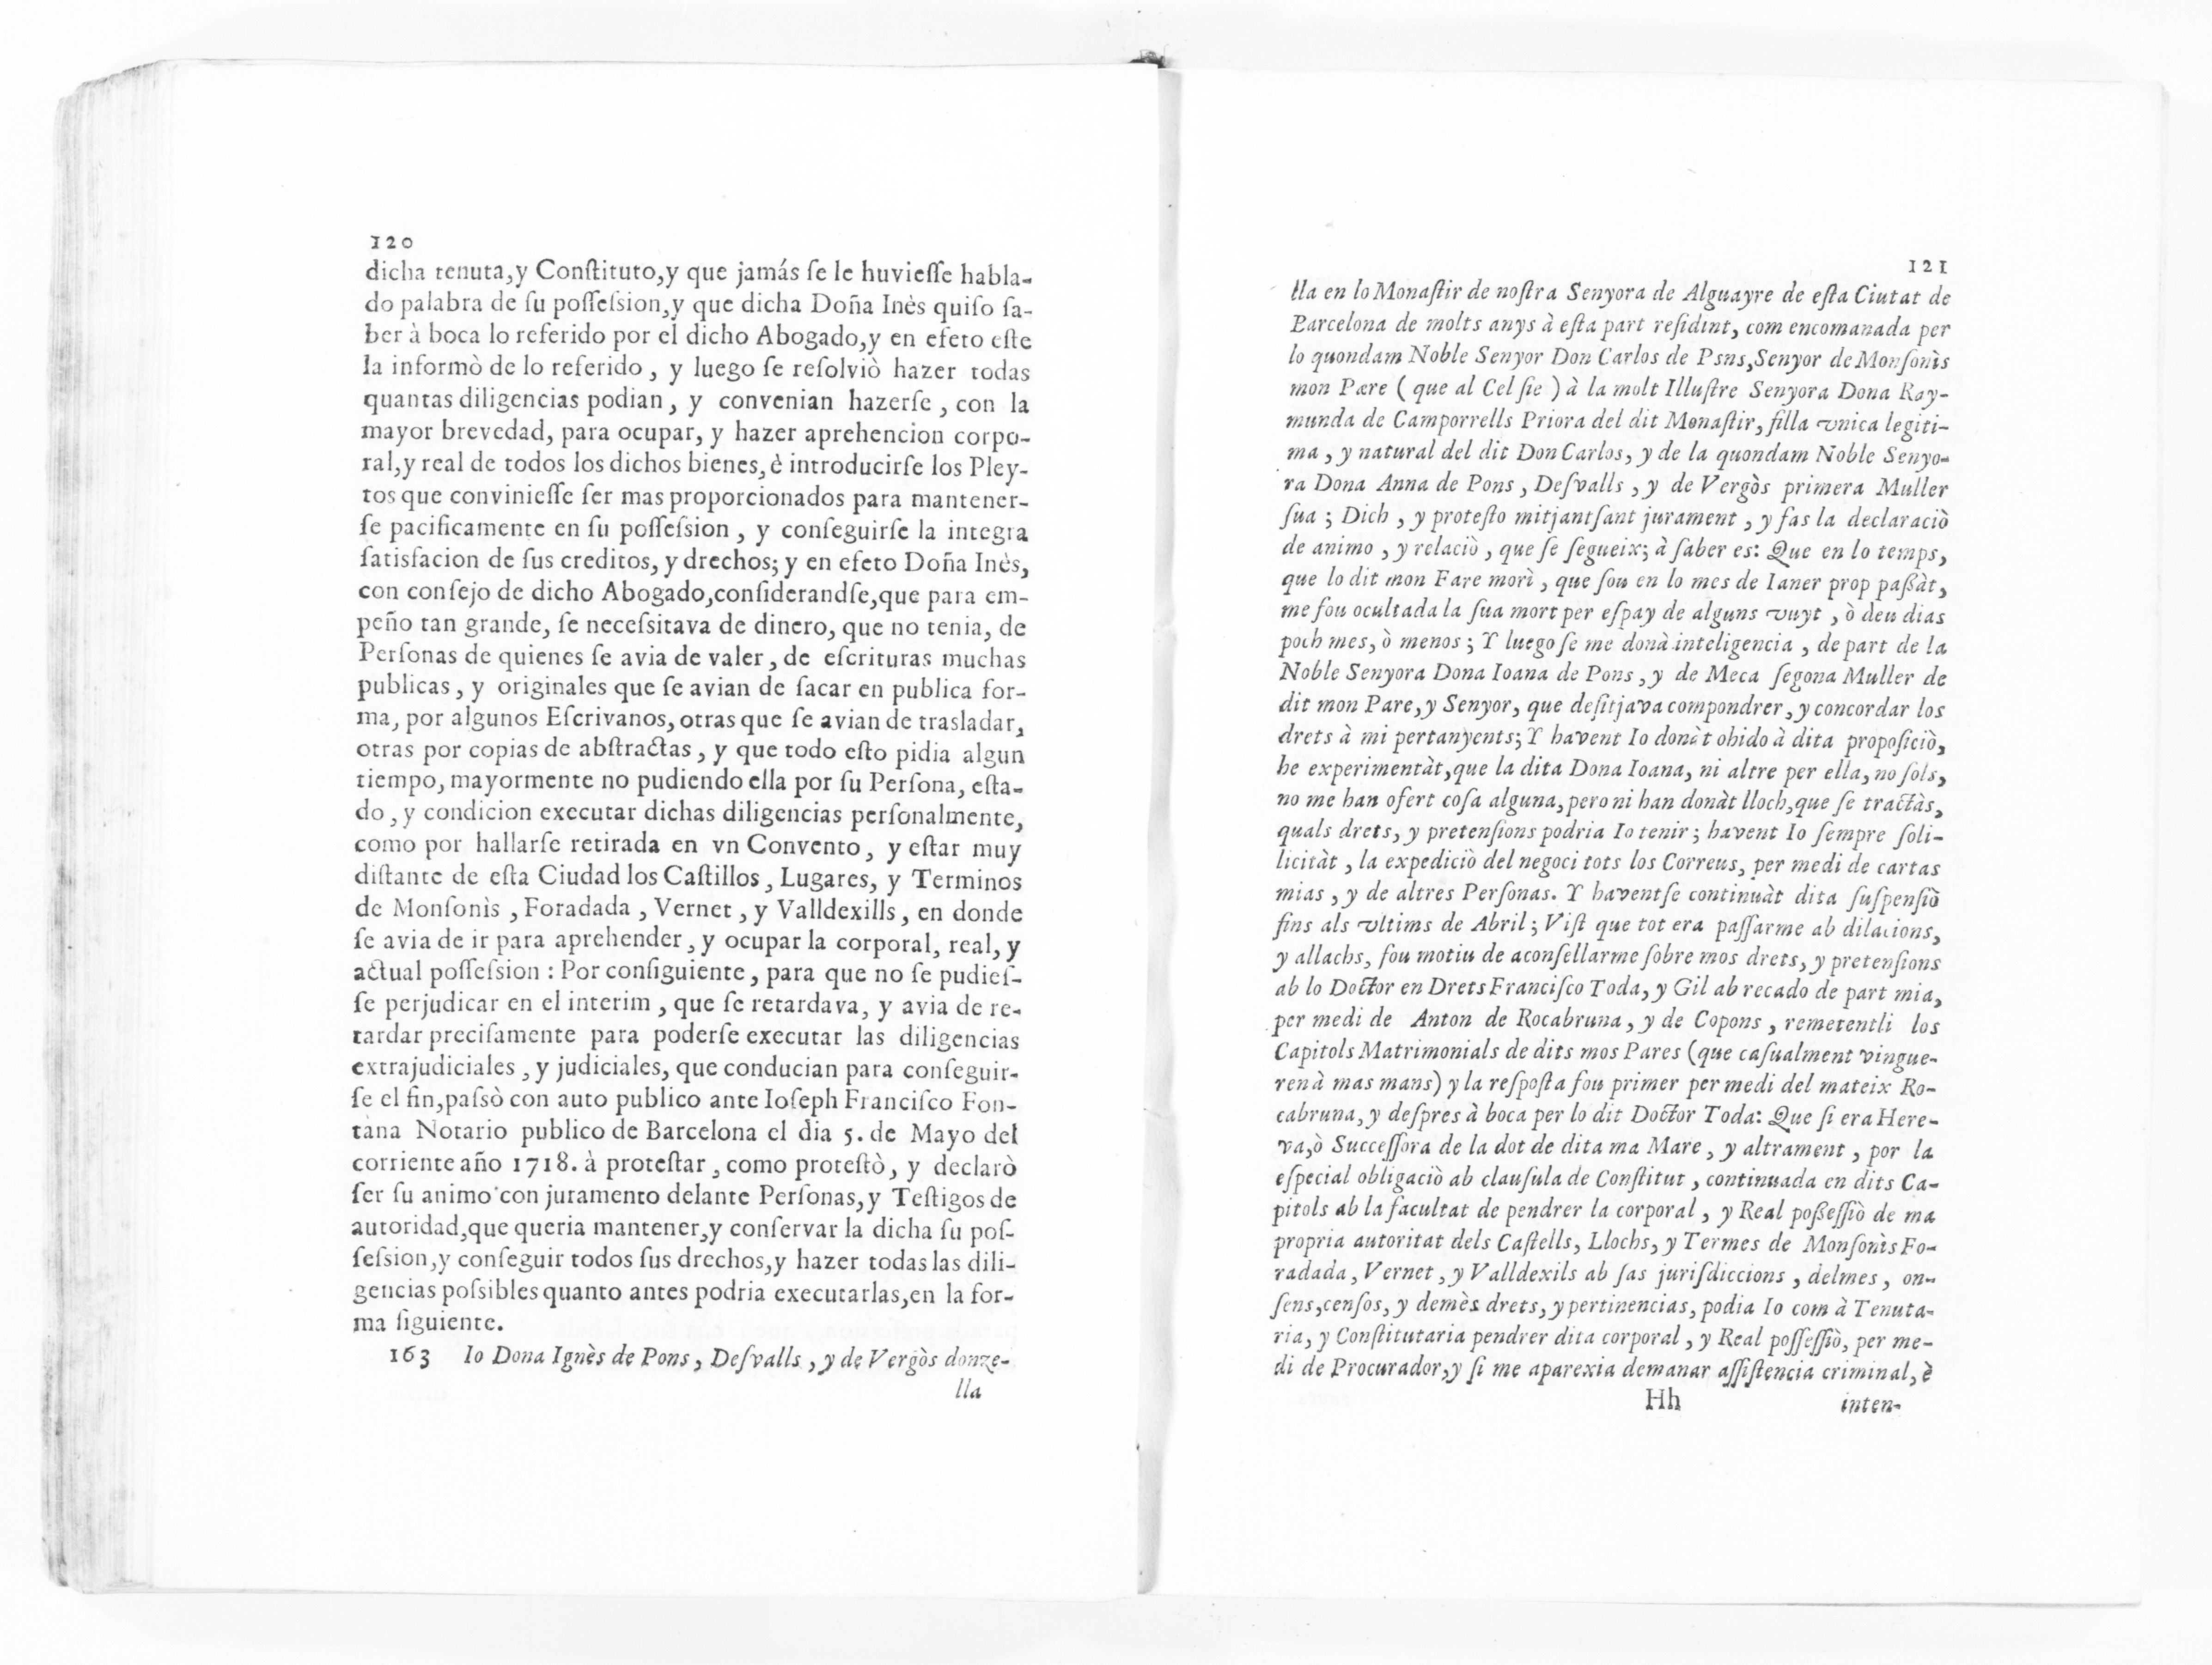 120
dicha tenuta,y Conſtituto,y que jamás ſe le huvieſſe habla-
do palabra de ſu poſſeſsion,y que dicha Doña Inès quiſo ſa-
ber à boca lo referido por el dicho Abogado,y en efeto eſte
la informò de lo referido , y luego ſe reſolviò hazer todas
quantas diligencias podian , y convenian hazerſe , con la
mayor brevedad, para ocupar, y hazer aprehencion corpo-
ral,y real de todos los dichos bienes, è introducirſe los Pley-
tos que convinieſſe ſer mas proporcionados para mantener-
ſe pacificamente en ſu poſſeſsion , y conſeguirſe la integra
ſatisfacion de ſus creditos, y drechos; y en efeto Doña Inès,
con conſejo de dicho Abogado,conſiderandſe,que para em-
peño tan grande, ſe neceſsitava de dinero, que no tenia, de
Perſonas de quienes ſe avia de valer , de eſcrituras muchas
publicas , y originales que ſe avian de ſacar en publica for-
ma, por algunos Eſcrivanos, otras que ſe avian de trasladar,
otras por copias de abſtractas , y que todo eſto pidia algun
tiempo, mayormente no pudiendo ella por ſu Perſona, eſta-
do , y condicion executar dichas diligencias perſonalmente,
como por hallarſe retirada en vn Convento , y eſtar muy
diſtante de eſta Ciudad los Caſtillos , Lugares, y Terminos
de Monſonìs , Foradada , Vernet , y Valldexills , en donde
ſe avia de ir para aprehender , y ocupar la corporal, real, y
actual poſſeſsion : Por conſiguiente , para que no ſe pudieſ-
ſe perjudicar en el interim , que ſe retardava, y avia de re-
tardar preciſamente para poderſe executar las diligencias
extrajudiciales , y judiciales, que conducian para conſeguir-
ſe el fin,paſsò con auto publico ante Ioſeph Franciſco Fon-
tàna Notario publico de Barcelona el dia 5. de Mayo del
corriente año 1718. à proteſtar , como proteſtò, y declarò
ſer ſu animo con juramento delante Perſonas,y Teſtigos de
autoridad,que queria mantener,y conſervar la dicha ſu poſ-
ſeſsion,y conſeguir todos ſus drechos,y hazer todas las dili-
gencias poſsibles quanto antes podria executarlas,en la for-
ma ſiguiente.
163 Io Dona Ignès de Pons , Deſvalls , y de Vergòs donze-
lla
121
lla en lo Monaſtir de noſtra Senyora de Alguayre de eſta Ciutat de
Barcelona de molts anys à eſta part reſidint, com encomanada per
lo quondam Noble Senyor Don Carlos de Psns,Senyor de Monſonìs
mon Pare ( que al Cel ſie ) à la molt Illuſtre Senyora Dona Ray-
munda de Camporrells Priora del dit Monaſtir, filla vnica legiti-
ma , y natural del dit Don Carlos, y de la quondam Noble Senyo-
ra Dona Anna de Pons , Deſvalls , y de Vergòs primera Muller
ſua ; Dich , y proteſto mitjantſant jurament , y fas la declaraciò
de animo , y relaciò , que ſe ſegueix; à ſaber es: Que en lo temps,
que lo dit mon Fare morì , que ſou en lo mes de Ianer prop paßàt,
me fou ocultada la ſua mort per eſpay de alguns vuyt , ò deu dias
poch mes, ò menos ; Y luego ſe me donà inteligencia , de part de la
Noble Senyora Dona Ioana de Pons , y de Meca ſegona Muller de
dit mon Pare,y Senyor, que deſitjava compondrer, y concordar los
drets à mi pertanyents; Y havent Io donàt ohido à dita propoſiciò,
he experimentàt,que la dita Dona Ioana, ni altre per ella, no ſols,
no me han ofert coſa alguna, pero ni han donàt lloch,que ſe tractàs,
quals drets, y pretenſions podria Io tenir ; havent Io ſempre ſoli-
licitàt , la expediciò del negoci tots los Correus, per medi de cartas
mias , y de altres Perſonas. Y haventſe continuàt dita ſuſpenſiò
fins als vltims de Abril ; Viſt que tot era paſſarme ab dilacions,
y allachs, fou motiu de aconſellarme ſobre mos drets, y pretenſions
ab lo Doctor en Drets Franciſco Toda, y Gil ab recado de part mia,
per medi de Anton de Rocabruna, y de Copons , remetentli los
Capitols Matrimonials de dits mos Pares (que caſualment vingue-
ren à mas mans) y la reſpoſta fou primer per medi del mateix Ro-
cabruna, y deſpres à boca per lo dit Doctor Toda: Que ſi era Here-
va,ò Succeſſora de la dot de dita ma Mare , y altrament , por la
eſpecial obligaciò ab clauſula de Conſtitut , continuada en dits Ca-
pitols ab la facultat de pendrer la corporal , y Real poßeſſiò de ma
propria autoritat dels Caſtells, Llochs, y Termes de Monſonìs Fo-
radada , Vernet , y Valldexils ab ſas juriſdiccions , delmes , on-
ſens,cenſos, y demès drets, y pertinencias, podia Io com à Tenuta-
ria, y Conſtitutaria pendrer dita corporal , y Real poſſeſſiò, per me-
di de Procurador,y ſi me aparexia demanar aſſiſtencia criminal, è
Hh inten-